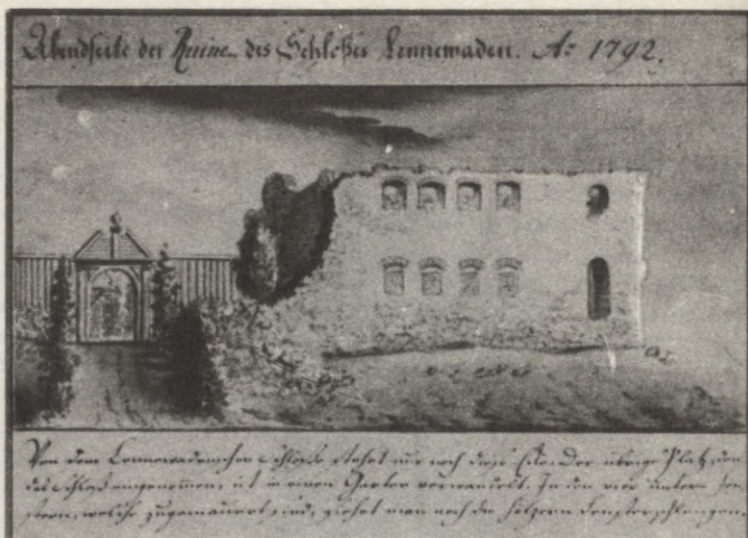 Abendseite der Ruine des Schloßes Lennewaden. Aº 1792.
Von dem Lennewadenschen Schloße stehet nur noch diese Seite. Der übrige Platz, den
das Schloß eingenommen, ist in einen Garten verwandelt. In den vier untern Fen-
stern, welche zugemauert sind, siehet man noch die hölzern Fensterschlangen.